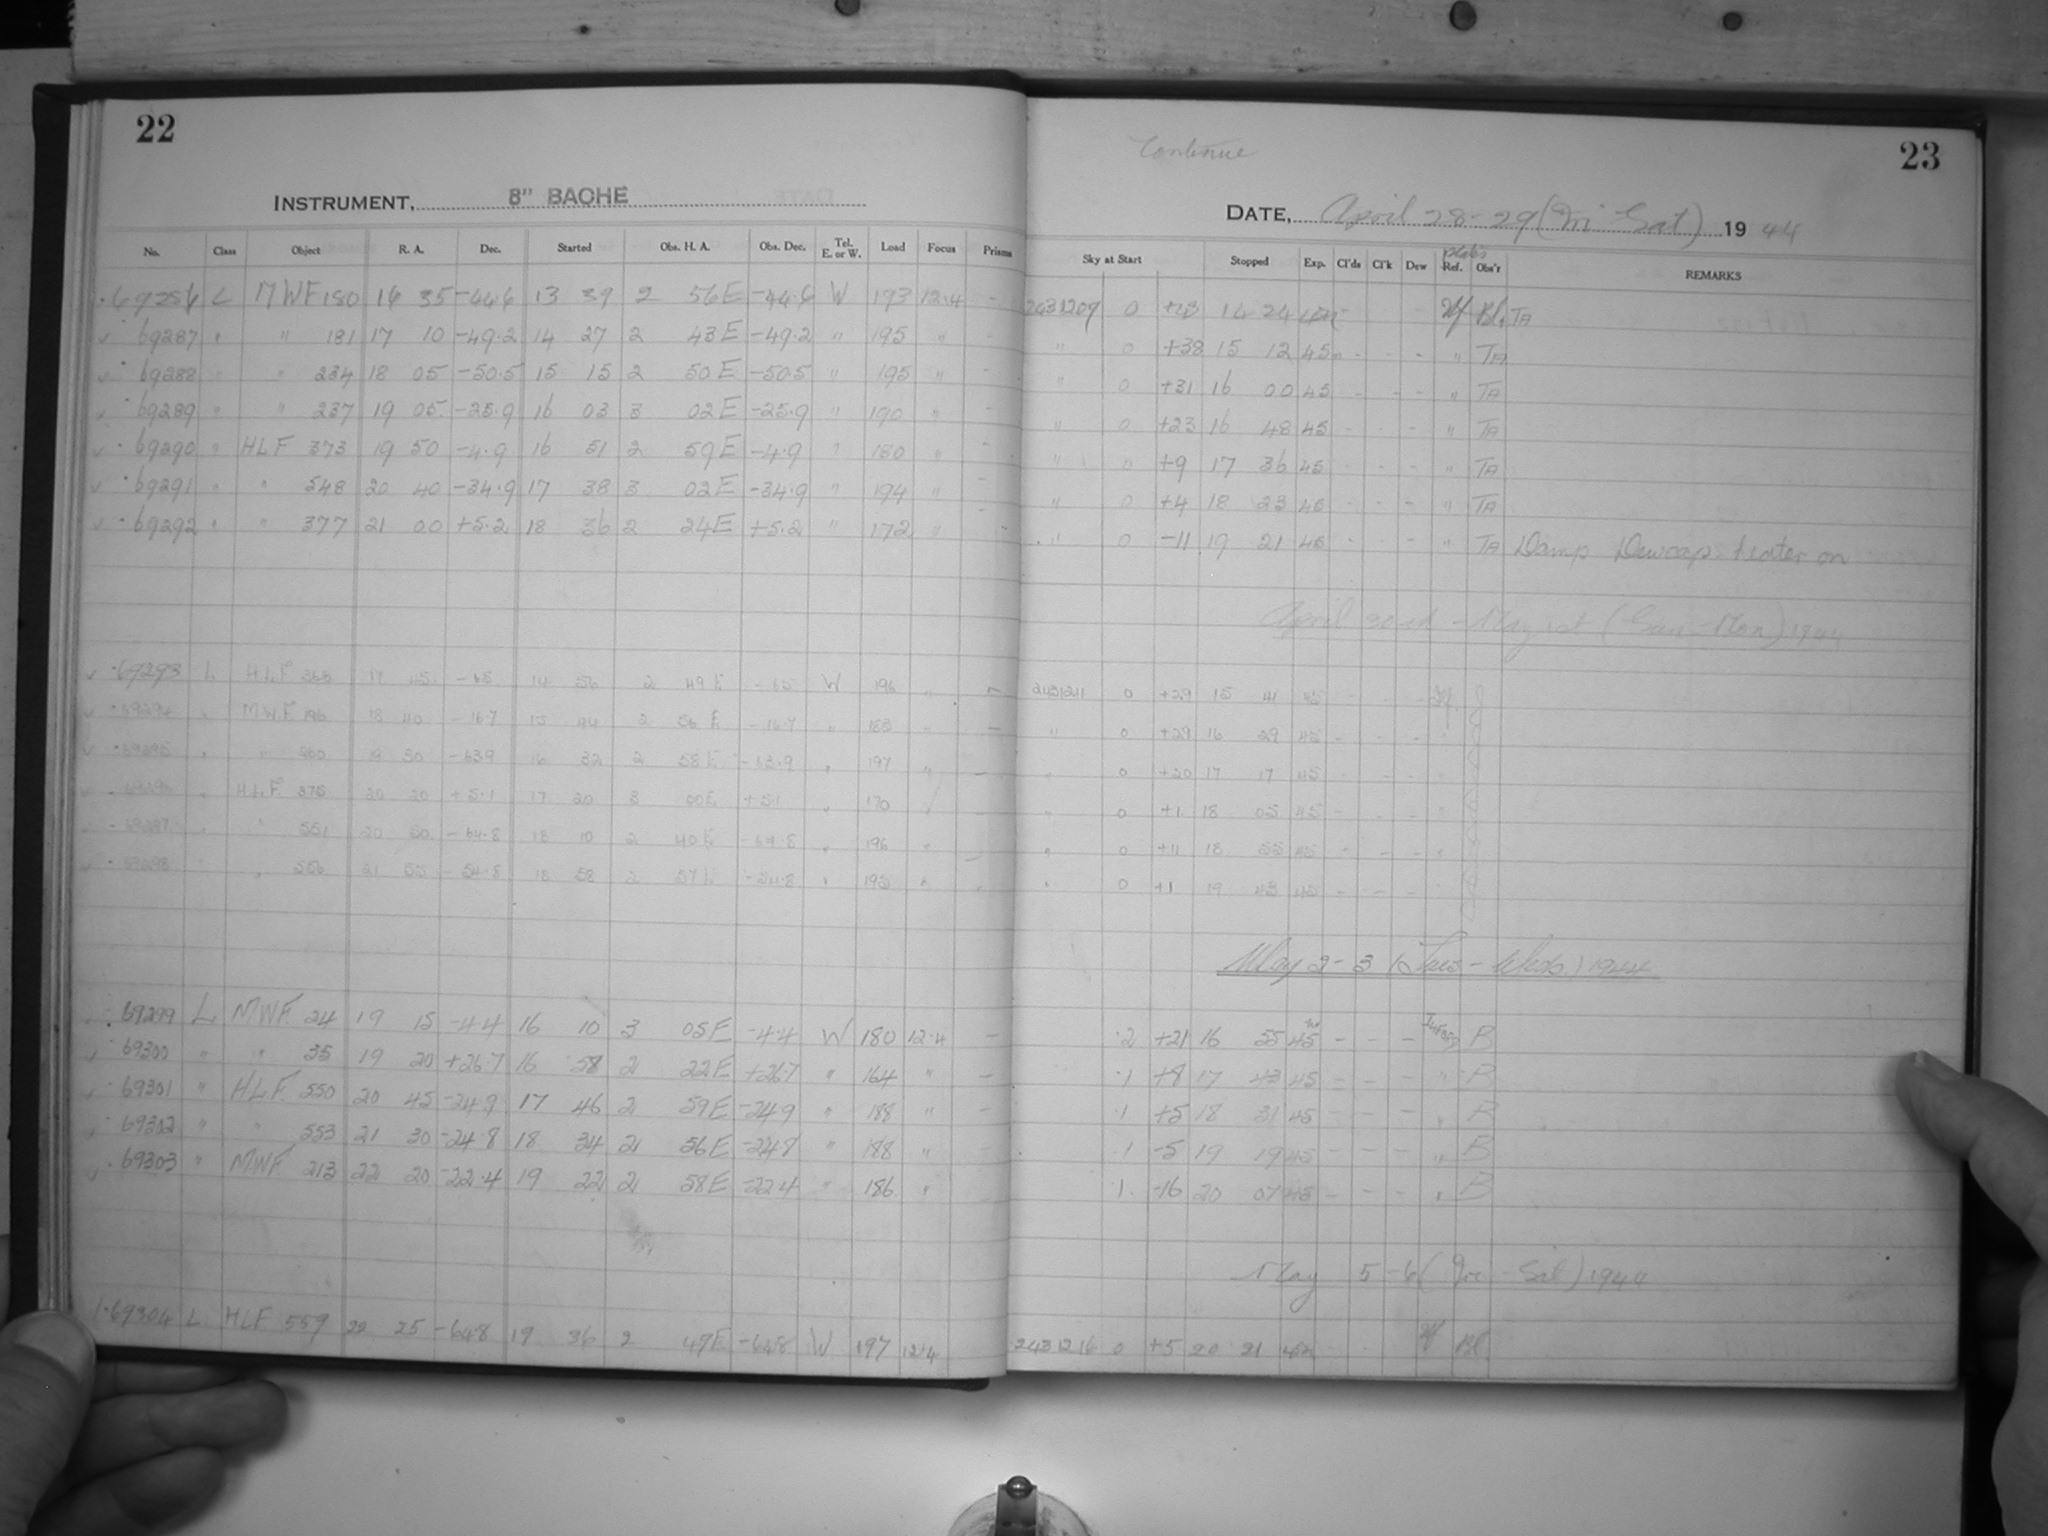 22
INSTRUMENT, 8" BACHE
No. Class Object R. A. Dec. Started Obs. H. A. Obs. Dec. Tel. E. or W. Load Focus Prisms
69286 L MWF 180 16 35 -44.6 13 39 2 56E -44.6 W 193 12.4 -
69287 " " 181 17 10 -49.2 14 27 2 43E -49.2 " 195 " -
69288 " " 234 18 05 -50.5 15 15 2 50E -50.5 " 195 " -
69289 " " 237 19 05 -25.9 16 03 3 02E -25.9 " 190 " -
69290 " HLF 373 19 50 -4.9 16 51 2 59E -4.9 " 180 " -
69291 " " 548 20 40 -34.9 17 38 3 02E -34.9 " 194 " -
69292 " " 377 21 00 +5.2 18 36 2 24E +5.2 " 172 " -
69293 L HLF 17 45 -65 14 56 2 49E -65 W 196 " -
69294 " MWF 196 18 40 -16.7 15 44 2 56E -16.7 " 185 - -
69295 " " 260 19 30 -63.9 16 32 2 58E -63.9 " 197 " -
69296 " HLF 375 20 20 +5.1 17 20 3 00E +5.1 " 170 " -
69297 " " 551 20 50 -64.8 18 10 2 40E -64.8 " 196 " -
69298 " " 556 21 55 -54.8 18 58 2 57E -54.8 " 195 " -
69299 L MWF 24 19 15 -4.4 16 10 3 05E -4.4 W 180 12.4 -
69300 " " 35 19 20 +26.7 16 58 2 22E +26.7 " 164 " -
69301 " HLF 550 20 45 -24.9 17 46 2 59E -24.9 " 188 " -
69302 " " 553 21 30 -24.8 18 34 2 56E -24.8 " 188 " -
69303 " MWF 213 22 20 -22.4 19 22 2 58E -22.4 " 186 "
69304 L HLF 559 22 25 -64.8 19 36 2 49E -64.8 W 197 12.4
Continue
23
DATE, April 28-29 (Fri Sat) 1944
Sky at Start Stopped Exp. Cl'ds Cl'k Dew Plates Ref. Obs'r REMARKS
2431209 0 14 24 45m - - Bl. TA
" 0 +38 15 12 45m - - - " TA
" 0 +31 16 00 45 - - - " TA
" 0 +23 16 48 45 - - - " TA
" " +9 17 36 45 - - - " TA
" 0 +4 18 23 45 - - - " TA
" 0 -11 19 21 45 - - - " TA Damp Dewcap heater on
April 30th - May 1st (Sun-Mon) 1944
2431211 0 +29 15 41 45 - - -
" 0 +29 16 29 45 - - -
" 0 +20 17 17 45 - - -
" 0 +1 18 05 45 - - -
" 0 +11 18 55 45 - - -
" 0 +1 19 43 45 - - -
May 2-3 (Tues-Wed) 1944
.2 +21 16 55 45m - - - B
.1 +8 17 43 45 - - - " B
.1 +5 18 31 45 - - - " B
.1 -5 19 19 45 - - - " B
.1 -16 20 07 45 - - - " B
May 5-6 (Fri-Sat) 1944
2431216 0 +5 20 21 45m Bl.